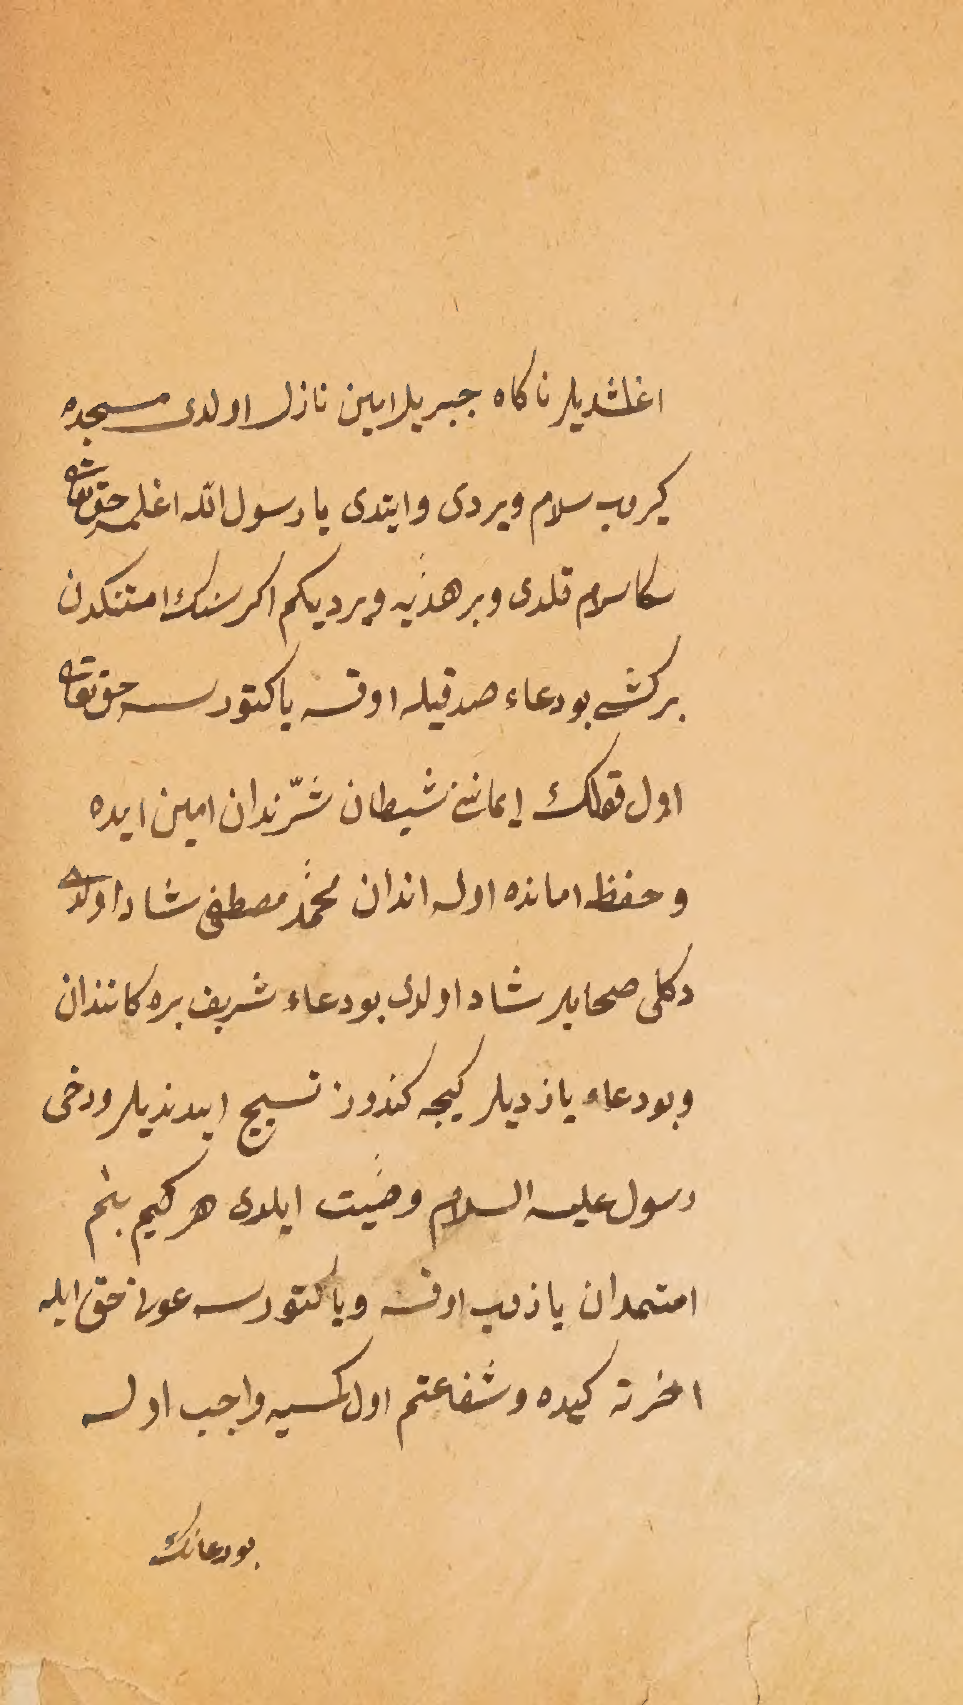 اغلشدیلر ناکاه جبریل امین نازل اولدی مسجده
کیروب سلام ویردی وایتدی یا رسول الله اغلمه حق تعالی
سکا سلام قلدی وبر هدیه ویردیکم اکر سنك امتنکدن
برکشی بودعاء صدقیله اوقسه یا کتورسه حق تعالی
اول قولك ایمانی شیطان شرّندان امین ایده
وحفظ امانده اوله اندان محمّد مصطفی شاد اولدی
دکلی صحابلر شاد اولدی بودعاء شریف برهکاتندان
وبودعاء یازدیلر کیجه کندوز تسبیح ایدندیلر ودخی
رسول علیه السلام وصیّت ایلدی هر کیم بنم
امتمدان یازوب اوقسه ویا کتورسه عون حق ایله
اخرته کیده وشفاعتم اول کمسیه واجب اوله
بودعانك